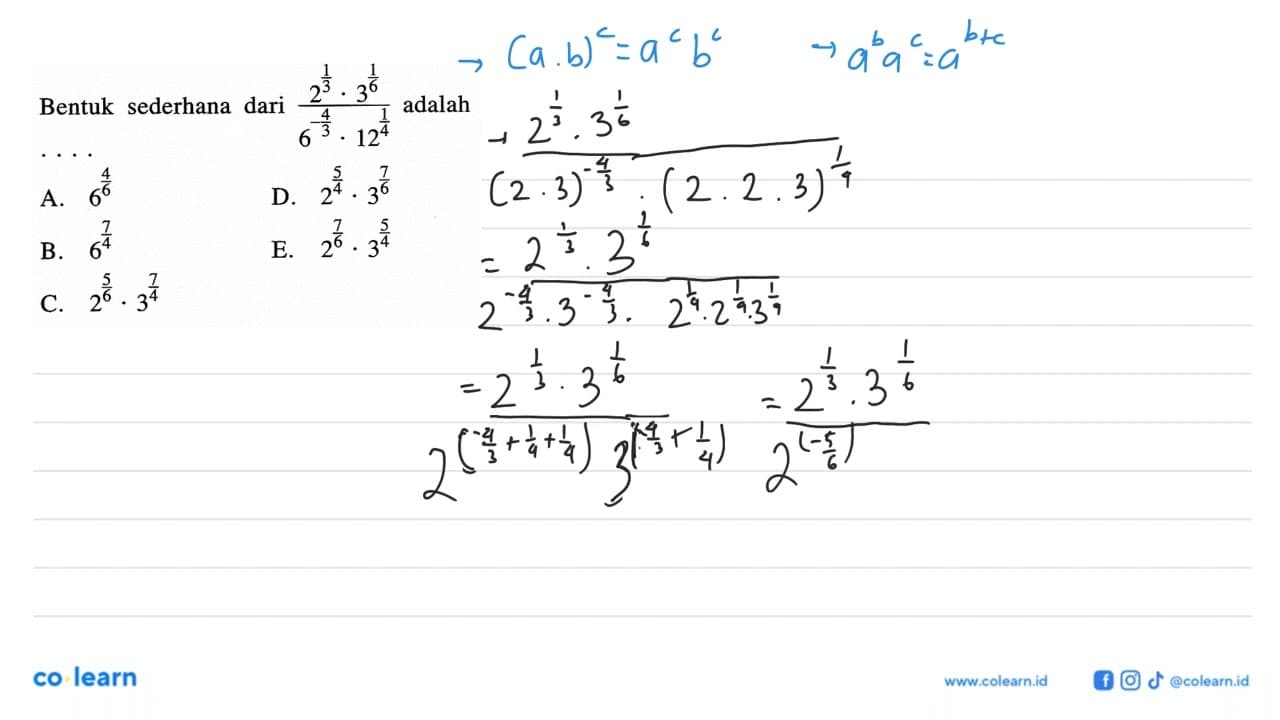 → (a.b)^c = a^c b^c → a^b a^c = a^{b+c}
Bentuk sederhana dari \frac{2^{\frac{1}{3}} · 3^{\frac{1}{6}}}{6^{-\frac{4}{3}} · 12^{\frac{1}{4}}} adalah
. . . .
A. 6^{\frac{4}{6}}
B. 6^{\frac{7}{4}}
C. 2^{\frac{5}{6}} · 3^{\frac{7}{4}}
D. 2^{\frac{5}{4}} · 3^{\frac{7}{6}}
E. 2^{\frac{7}{6}} · 3^{\frac{5}{4}}
→ \frac{2^{\frac{1}{3}} . 3^{\frac{1}{6}}}{(2 . 3)^{-\frac{4}{3}} . (2 . 2 . 3)^{\frac{1}{4}}}
= \frac{2^{\frac{1}{3}} . 3^{\frac{1}{6}}}{2^{-\frac{4}{3}} . 3^{-\frac{4}{3}} . 2^{\frac{1}{4}} . 2^{\frac{1}{4}} . 3^{\frac{1}{4}}}
= \frac{2^{\frac{1}{3}} . 3^{\frac{1}{6}}}{2^{(-\frac{4}{3} + \frac{1}{4} + \frac{1}{4})} 3^{(-\frac{4}{3} + \frac{1}{4})}} = \frac{2^{\frac{1}{3}} . 3^{\frac{1}{6}}}{2^{(-\frac{5}{6})}}
co learn
www.colearn.id @colearn.id